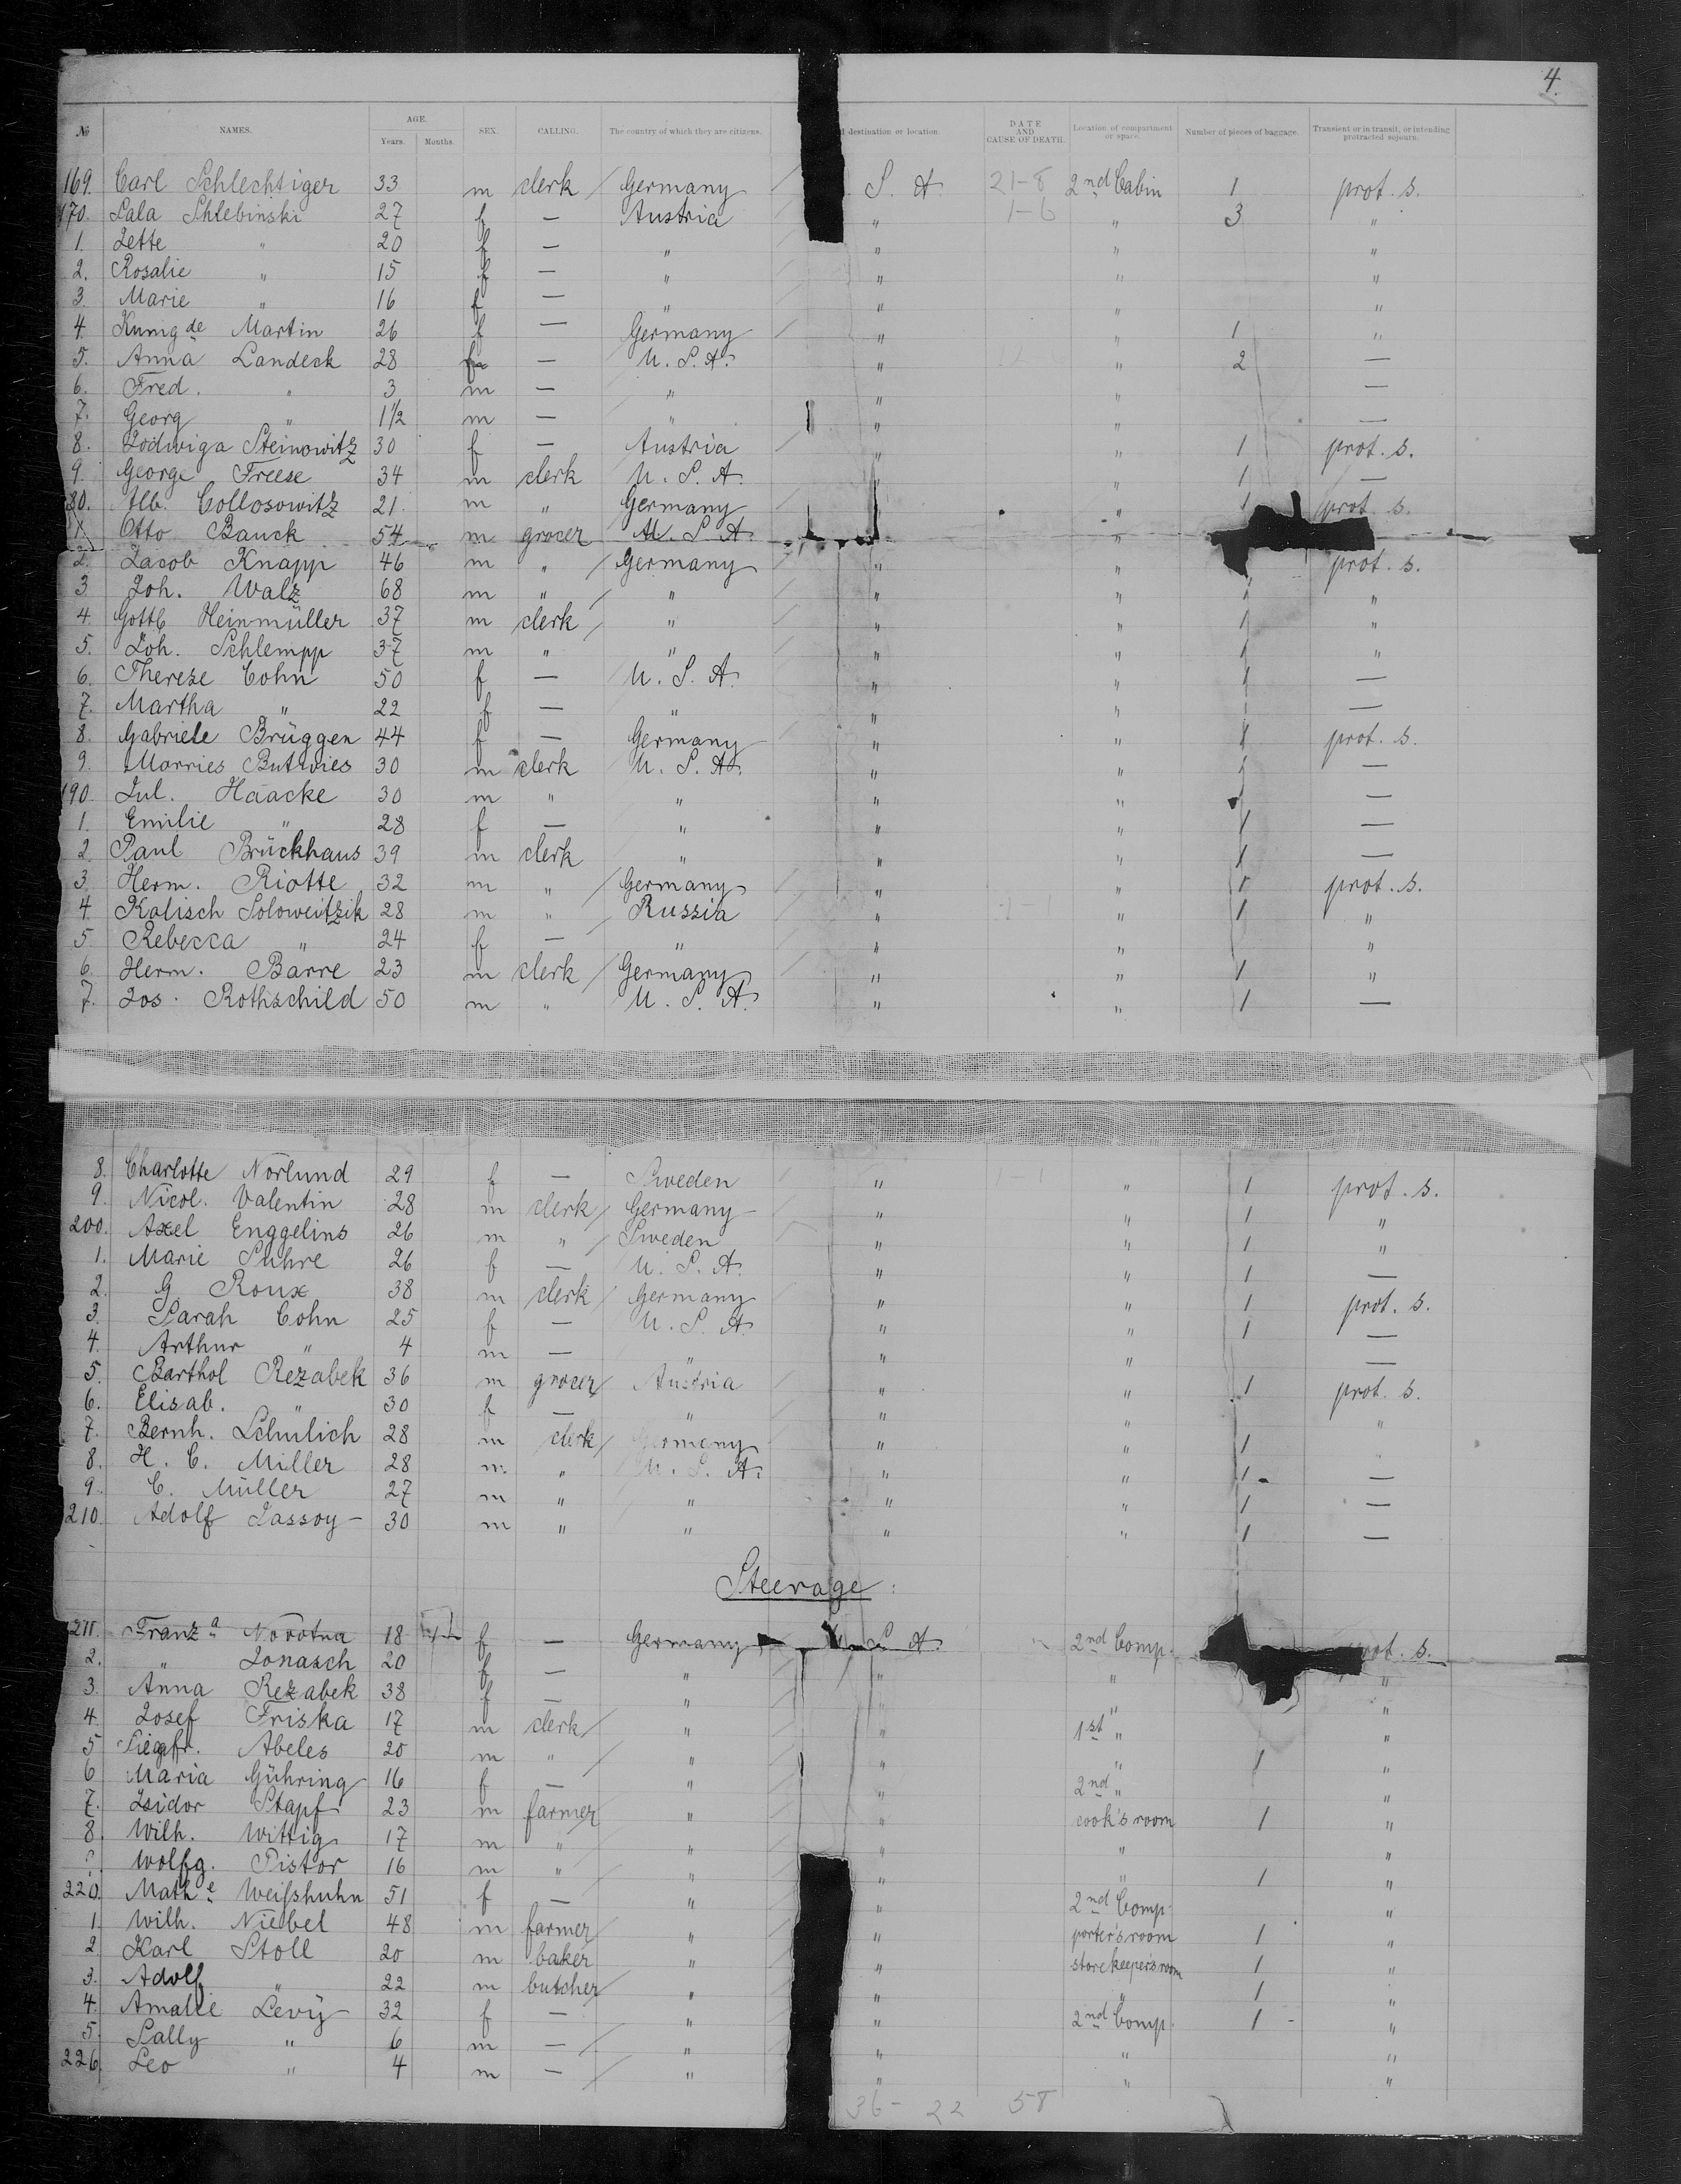 4.
№ NAMES. AGE. Years. Months. SEX. CALLING. The country of which they are citizens. l destination or location. DATE AND CAUSE OF DEATH. Location of compartment or space. Number of pieces of baggage. Transient or in transit, or intending protracted sojourn.
169. Carl Schlechtiger 33 m clerk Germany S. A. 21-8 2nd Cabin 1 prot. s.
170. Sala Shlebinski 27 f — Austria " 1-6 " 3 "
1. Jette " 20 f — " " " "
2. Rosalie " 15 f — " " " "
3. Marie " 16 f — " " " "
4. Kunigde Martin 26 f — Germany " " 1 "
5. Anna Landeck 28 f — U. S. A. " " 2 —
6. Fred. " 3 m — " " " —
7. Georg " 1 1/2 m — " " " —
8. Lodwiga Steinowitz 30 f — Austria " " 1 prot. s.
9. George Freese 34 m clerk U. S. A. " " 1 —
80. Alb. Collosowitz 21 m " Germany " " 1 prot. s.
1. Otto Bauck 54 m grocer U. S. A. "
2. Jacob Knapp 46 m " Germany " " prot. s.
3 Joh. Walz 68 m " " " " 1 "
4. Gottb Heinmüller 37 m clerk " " " 1 "
5. Joh. Schlempp 37 m " " " " 1 "
6. Therese Cohn 50 f — U. S. A. " " 1 —
7. Martha " 22 f — " " " —
8. Gabriele Brüggen 44 f — Germany " " 1 prot. s.
9. Morries Butwies 30 m clerk U. S. A. " " 1 —
190. Jul. Haacke 30 m " " " " 1 —
1. Emilie " 28 f — " " " 1 —
2. Paul Brückhaus 39 m clerk " " " 1 —
3. Herm. Riotte 32 m " Germany " " 1 prot. s.
4. Kalisch Soloweitzik 28 m " Russia " " 1 "
5 Rebecca " 24 f — " " " "
6. Herm. Barre 23 m clerk Germany " " 1 "
7. Jos. Rothschild 50 m " U. S. A. " " 1 —
8. Charlotte Norlund 29 f — Sweden " 1-1 " 1 prot. s.
9. Nicol. Valentin 28 m clerk Germany " " 1 "
200. Axel Enggelins 26 m " Sweden " " 1 "
1. Marie Suhre 26 f — U. S. A. " " 1 —
2. G Roux 38 m clerk Germany " " 1 prot. s.
3. Sarah Cohn 25 f — U. S. A. " " 1 —
4. Arthur " 4 m — " " " —
5. Barthol Rezabek 36 m grocer Austria " " 1 prot. s.
6. Elisab. " 30 f — " " " "
7. Bernh. Schulich 28 m clerk Germany " " 1 "
8. H. C. Miller 28 m " U. S. A. " " 1 —
9. C. Müller 27 m " " " " 1 —
210. Adolf Jassoy 30 m " " " " 1 —
Steerage:
211. Franza Novotna 18 f — Germany U. S. A. 2nd Comp. prot. s.
2. " Jonasch 20 f — " " " "
3. Anna Rezabek 38 f — " " " "
4. Josef Friska 17 m clerk " " 1st " "
5 Siegfr. Abeles 20 m " " " " 1 "
6 Maria Gühring 16 f — " " 2nd " "
7. Isidor Stapf 23 m farmer " " cook's room 1 "
8. Wilh. Wittig 17 m " " " " "
Wolfg. Pistor 16 m " " " " 1 "
220. Mathe Weiſshuhn 51 f — " " 2nd Comp. "
1. Wilh. Niebel 48 m farmer " " porter's room 1 "
2. Karl Stoll 20 m baker " " storekeeper's room 1 "
3. Adolf " 22 m butcher " " " 1 "
4. Amalie Levy 32 f — " " 2nd Comp. 1 "
5. Sally " 6 m — " " " "
226. Leo " 4 m — " " " "
36- 22 58